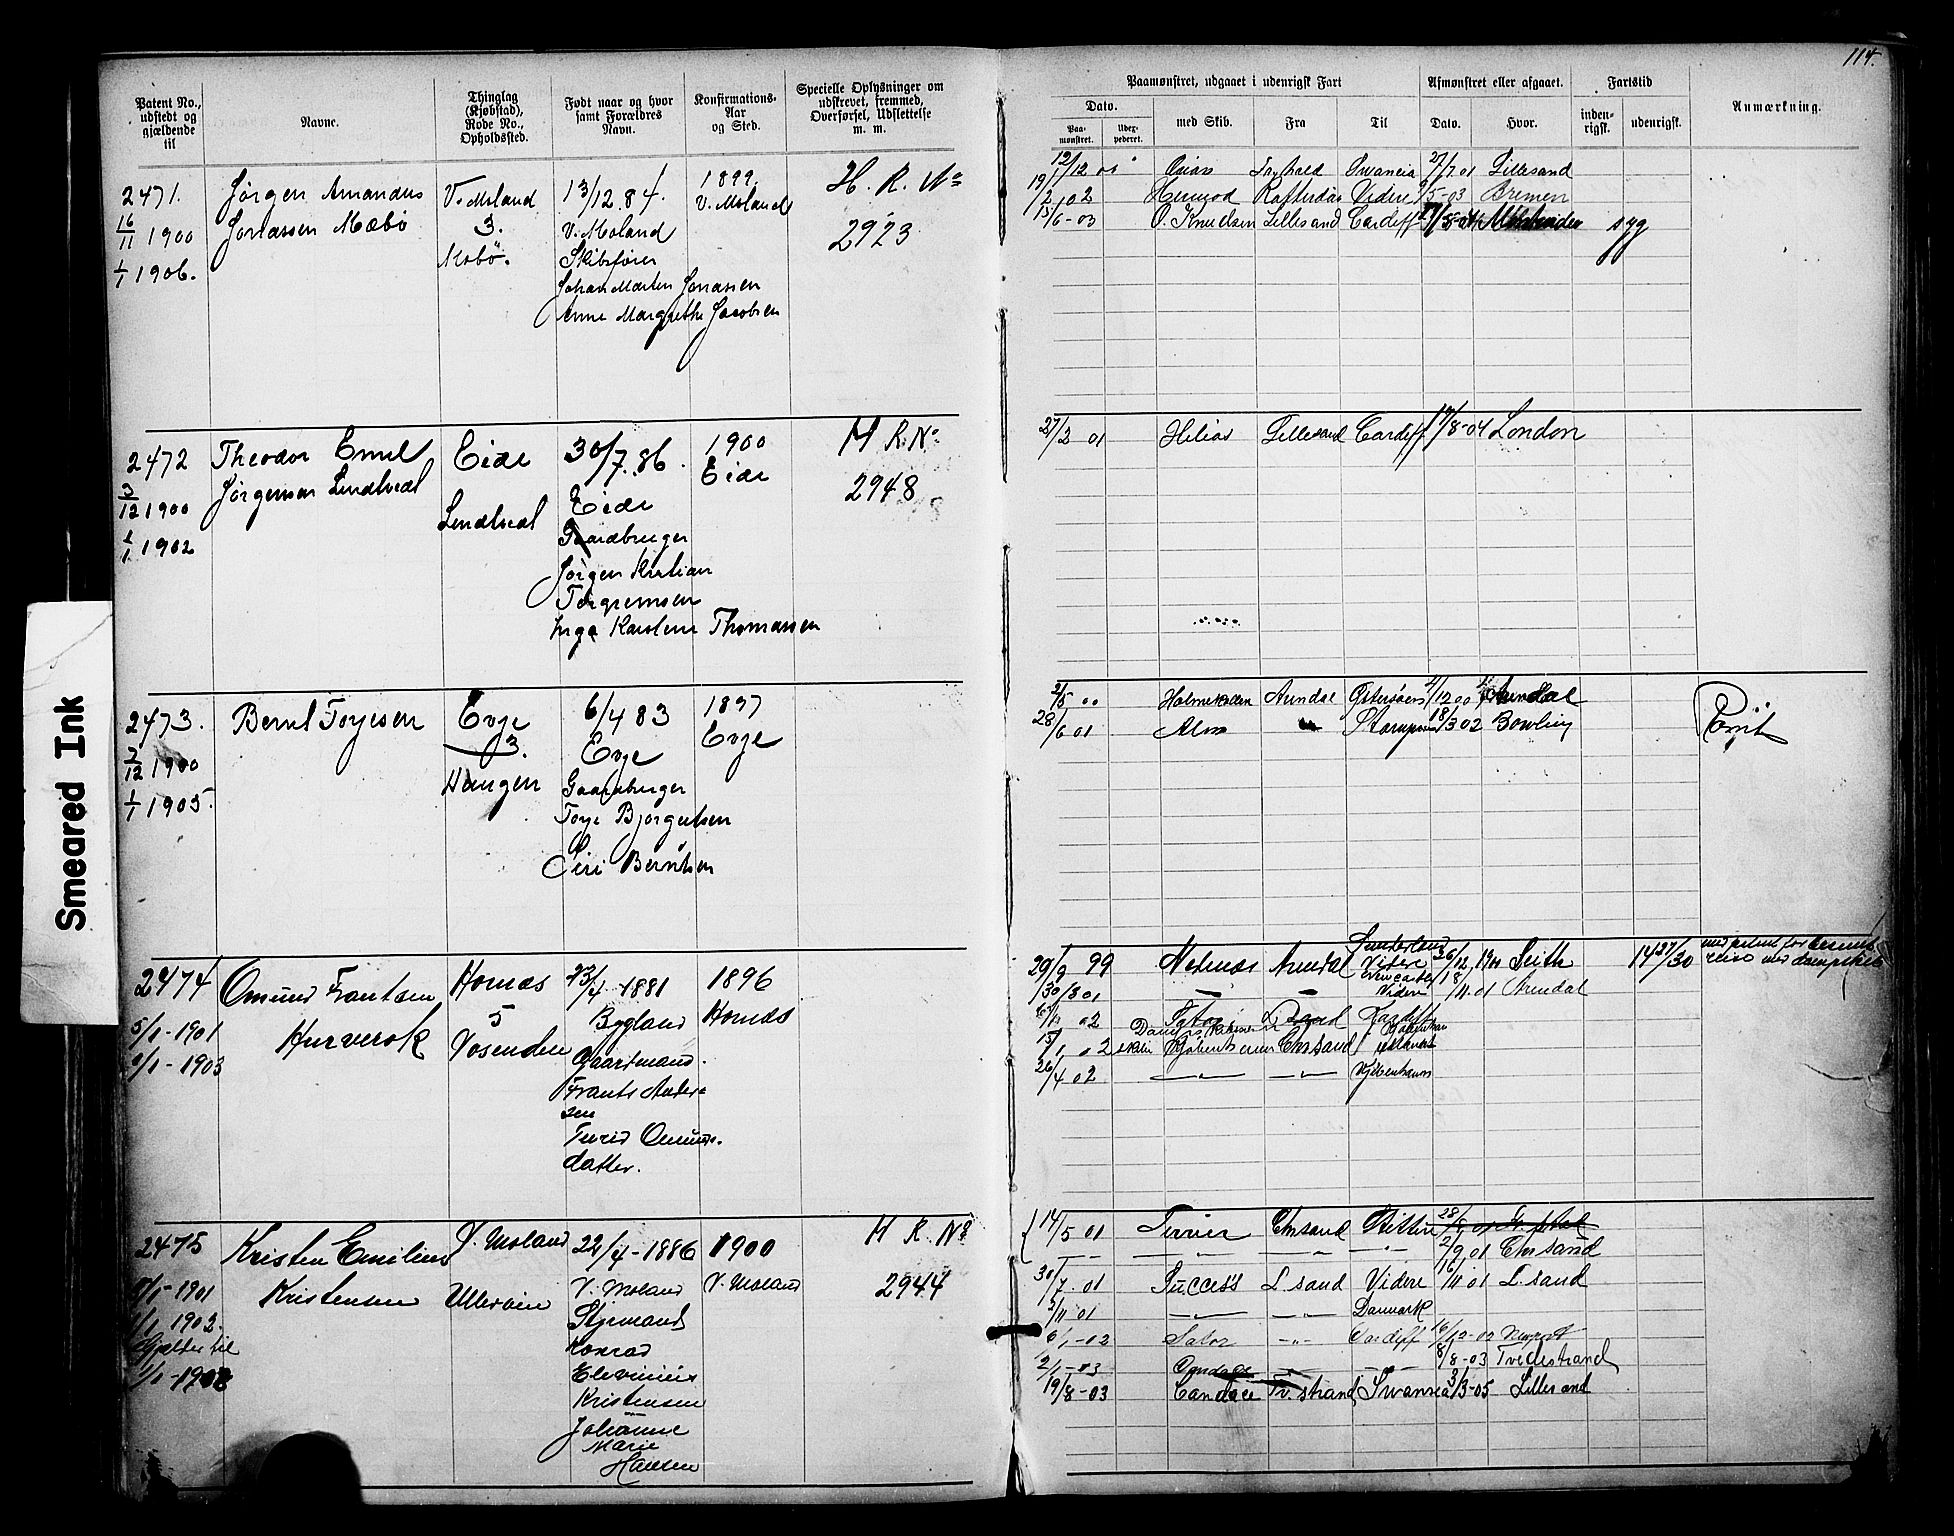 114.
Patent No., udstedt og gjældende til
Navne.
Thinglag (Kjøbstad), Rode No., Opholdssted.
Født naar og hvor samt Forældres Navn.
Konfirmations-Aar og Sted.
Specielle Oplysninger om udskrevet, fremmed, Overførsel, Udslettelse m. m.
Paamønstret, udgaaet i udenrigsk Fart
Dato.
Paa-mønstret.
Udex-pederet.
med Skib.
Fra
Til
Afmønstret eller afgaaet.
Dato.
Hvor.
Fartstid
inden-rigsk.
udenrigsk.
Anmærkning.
2471. Jørgen Amandus V. Moland 13/12.84. 1899. H. R. No
16/11 1900 Jonassen Mæbø 3. V. Moland V. Moland 2923
1/1 1906. Mæbø. Skibsfører
Johan Morten Jonassen
Anne Margrethe Jacobsen
12/12 00 Lillesand 27/7 01
19/2 02 Hermod Rotterdam Videre /5-03 Bremen
15/6-03 O. Knudsen Lillesand Cardiff syg
2472 Theodor Emil Eide 30/7.86. 1900 H R. No
3/12 1900 Jørgensen Lendtvedt Lendtvedt Eide Eide 2948
1/1 1902 Gaardbruger
Jørgen Kristian
Torgrimsen
Inga Karoline Thomassen
27/2 01 Helios Lillesand Cardiff 19/8-04 London
2473. Bernt Torjesen Evje 6/4 83 1897
3/12 1900 3. Evje Evje
1/1 1905. Haugen Gaardbruger
Torje Bjorgulsen
Siri Berntsen
2/5 00 Holmestaden Arendal Østersøen /12 00 Arendal
28/6 01 Alm 18/3 02 Bowling
2474 Omund Frantsen Hornæs 23/4 1881 1896
5/1-1901 Hurverok 5 Bygland Hornæs
1/1-1903 Vosenden Gaardmand.
Frants Ander-
sen
Turid Omunds-
datter.
29/9 99 Nedenæs Arendal Sunderland Videre 26/12 1900 Leith 14 27/30
Newcastle Videre 18/11-01 Arendal
30/3 01
02 Cardiff
15/1 02 Kjøbenhavn Chrsand
26/4 02 Kjøbenhavn
2475 Kristen Emilius V. Moland 22/4-1886 1900 H R. No
1/1-1901 Kristensen Ullersøen V. Moland V. Moland 2944
1/1 1903. Styrmand
Gjælder til Konrad
1/1-1908 Elevinius
Kristensen
Johanne
Marie
Hansen
14/5 01 Terrier Chrsand Stettin 28/8 01
2/9 01 Chrsand
30/7.01 Success L. sand Videre 16/11 01 L. sand
2/11 01 Danmark
6/1-02 Sator Cardiff 16/12-02 Newport
2/1-03 8/8-03 Tvedestrand
19/8-03 Candace Tv. strand Swansea 3/3-05 Lillesand
Smeared Ink